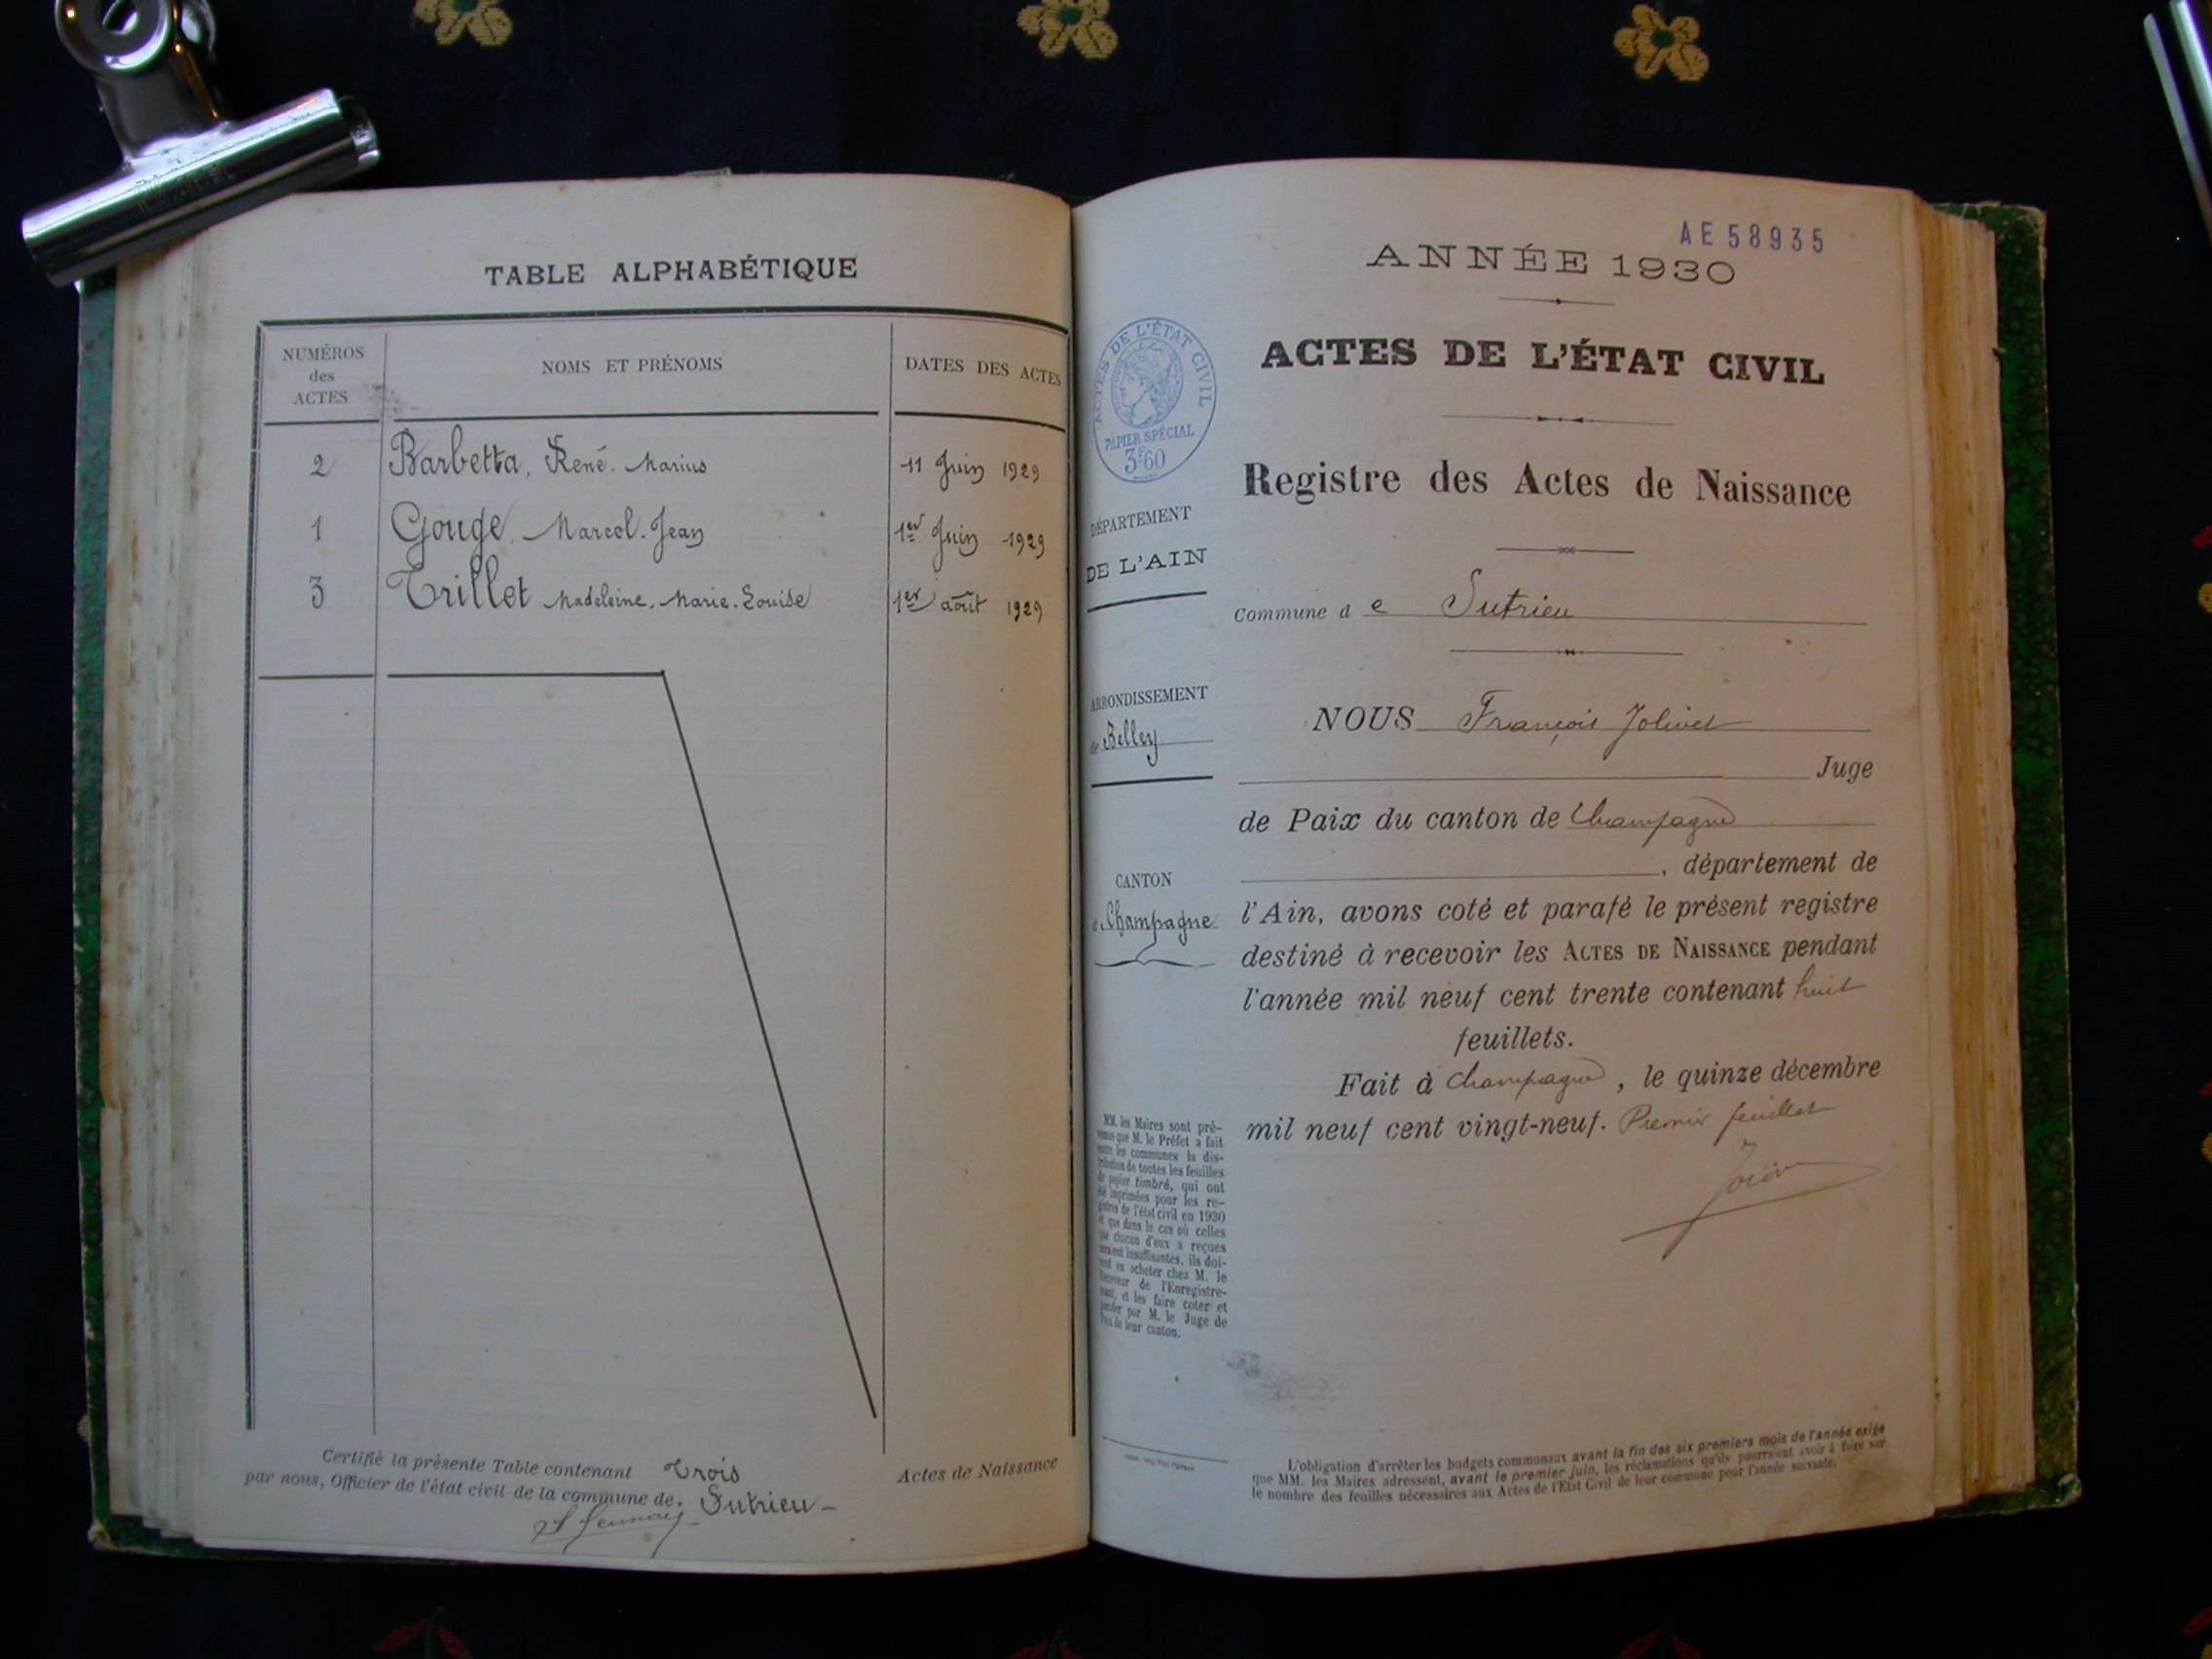 TABLE ALPHABÉTIQUE
NUMÉROS
des
ACTES
NOMS ET PRÉNOMS
DATES DES ACTES
2 Barbetta, René. Marius 11 Juin 1929
1 Gouge, Marcel. Jean 1er Juin 1929
3 Trillet Madeleine. Marie. Louise 1er août 1929
Certifié la présente Table contenant Trois
par nous, Officier de l'état civil de la commune de. Sutrieu
Actes de Naissance
AE 58935
ANNÉE 1930
ACTES DE L'ÉTAT CIVIL
ACTES DE L'ÉTAT CIVIL
PAPIER SPÉCIAL
3F60
Registre des Actes de Naissance
DÉPARTEMENT
DE L'AIN
Commune de Sutrieu
ARRONDISSEMENT
de Belley
NOUS François Jolivet
Juge
de Paix du canton de Champagne
, département de
CANTON
de Champagne
l'Ain, avons coté et parafé le présent registre
destiné à recevoir les ACTES DE NAISSANCE pendant
l'année mil neuf cent trente contenant huit
feuillets.
Fait à Champagne, le quinze décembre
mil neuf cent vingt-neuf. Premier feuillet
MM. les Maires sont pré-
venus que M. le Préfet a fait
les communes la dis-
tribution de toutes les feuilles
de papier timbré, qui ont
été imprimées pour les re-
gistres de l'état civil en 1930
et que dans le cas où celles
que chacun d'eux a reçues
seraient insuffisantes, ils doi-
vent en acheter chez M. le
Receveur de l'Enregistre-
ment, et les faire coter et
parafer par M. le Juge de
Paix de leur canton.
L'obligation d'arrêter les budgets communaux avant la fin des six premiers mois de l'année exige
que MM. les Maires adressent, avant le premier juin, les réclamations qu'ils pourraient avoir à faire sur
le nombre des feuilles nécessaires aux Actes de l'État Civil de leur commune pour l'année suivante.